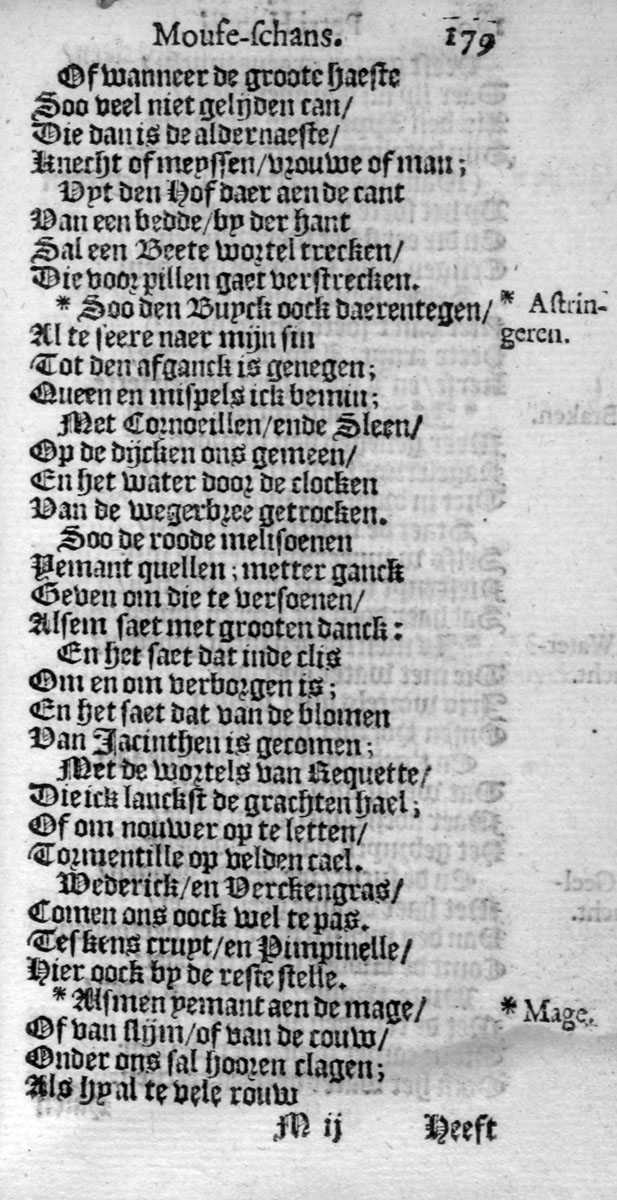 Mouse-schans. 179
Of wanneer de groote haeste
Soo veel niet gelijden can/
Die dan is de aldernaeste/
Knecht of meyssen/vrouwe of man;
Vyt den Hof daer aen de cant
Van een bedde/by der hant
Sal een Beete wortel trecken/
Die voor pillen gaet verstrecken.
* Soo den Buyck oock daerentegen/ * Astrin-
Al te seere naer mijn sin geren.
Tot den afganck is genegen;
Queen en mispels ick bemin;
Met Cornoeillen/ende Sleen/
Op de dijcken ons gemeen/
En het water door de clocken
Van de wegerbree getrocken.
Soo de roode melisoenen
Yemant quellen; metter ganck
Geven om die te versoenen/
Alsem saet met grooten danck:
En het saet dat inde clis
Om en om verborgen is;
En het saet dat van de blomen
Van Jacinthen is gecomen;
Met de wortels van Requette/
Die ick lanckst de grachten hael;
Of om nouwer op te letten/
Tormentille op velden cael.
Wederick/en Verckengras/
Comen ons oock wel te pas.
Teskens cruyt/en Pimpinelle/
Hier oock by de reste stelle.
* Alsmen yemant aen de mage/ * Mage.
Of van slijm/of van de couw/
Onder ons sal hooren clagen;
Als hy al te vele rouw
M ij Heeft